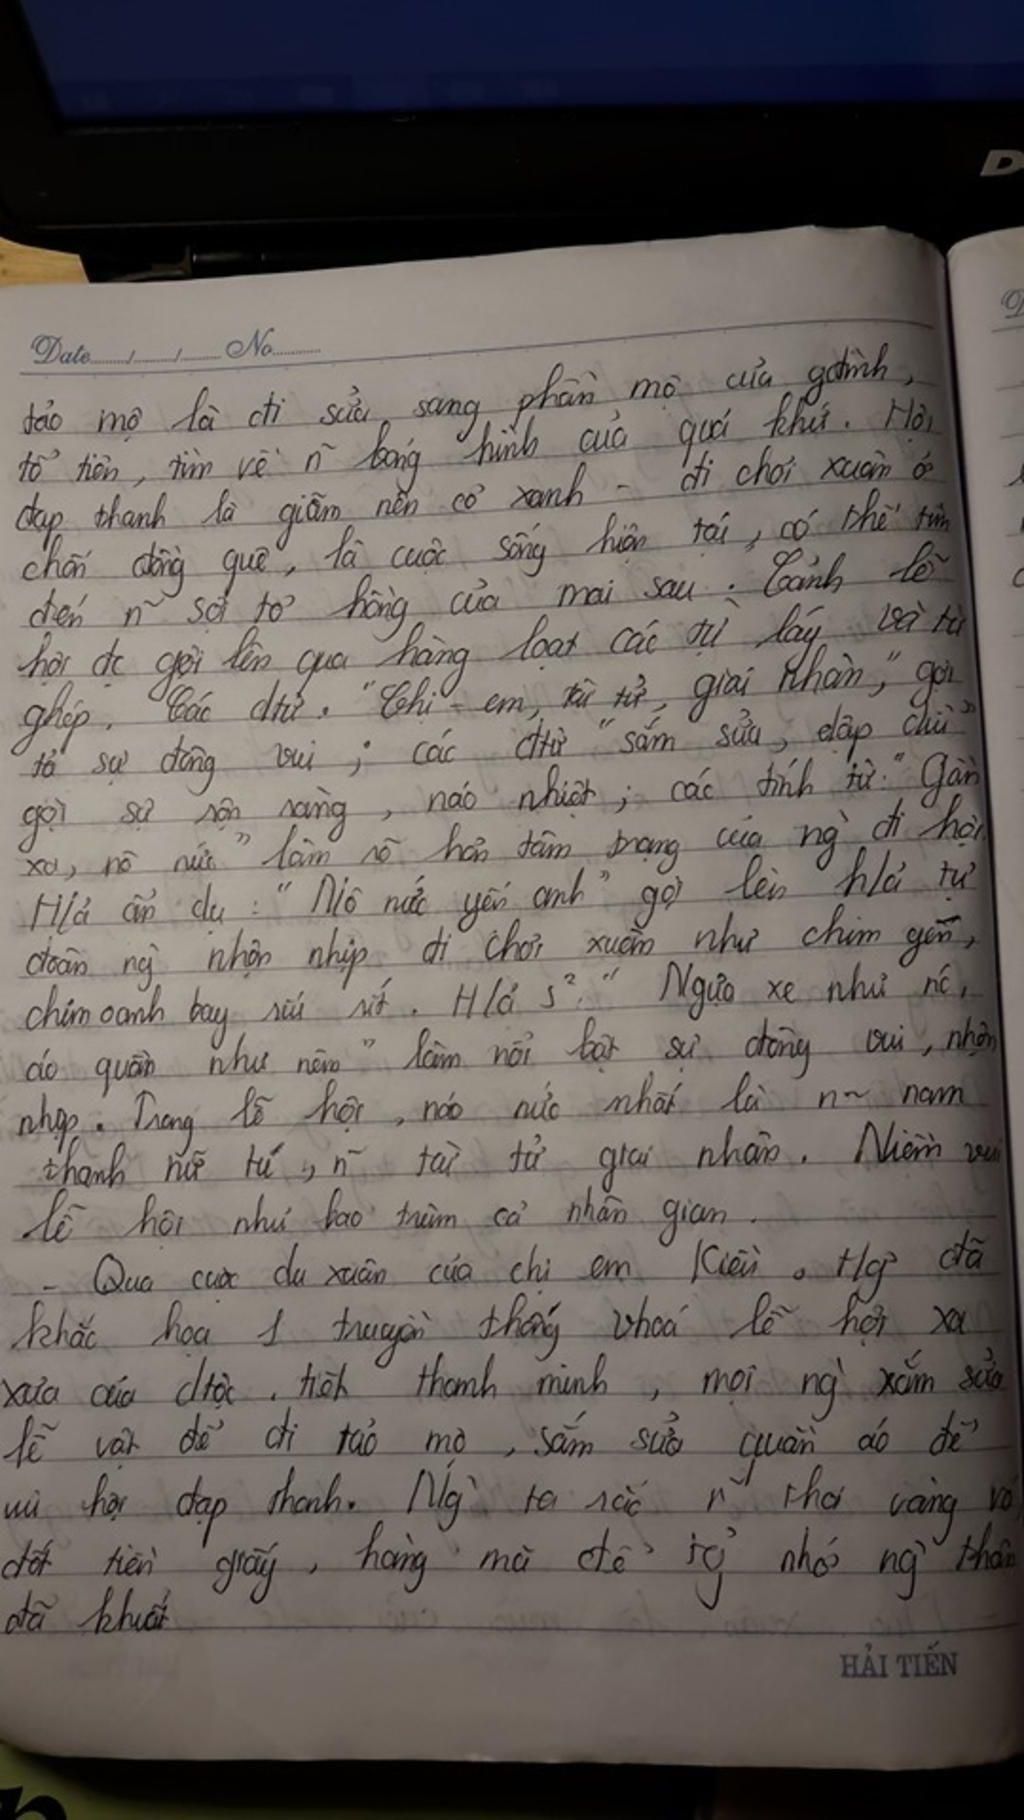 D
Date....../....../...... No..........
tảo mộ là đi sửa sang phần mộ của gđình,
tổ tiên, tìm về n~ bóng hình của quá khứ. Hội
đạp thanh là giẫm nên cỏ xanh - đi chơi xuân ở
chốn đồng quê, là cuộc sống hiện tại, có thể tìm
đến n~ sợi tơ hồng của mai sau. Cảnh lễ
hội đc gợi lên qua hàng loạt các từ láy và từ
ghép. Các dtừ. "Chị - em, tài tử, giai nhân," gợi
tả sự đông vui ; các đtừ "sắm sửa, dập dìu"
gợi sự rộn ràng, náo nhiệt ; các tính từ: "Gần
xa, nô nức" làm rõ hơn tâm trạng của ng` đi hội.
H/ả ẩn dụ : "Nô nức yến anh" gợi lên h/ả từ
đoàn ng` nhộn nhịp đi chơi xuân như chim yến,
chim oanh bay ríu rít. H/ả s²: "Ngựa xe như nc,
áo quần như nêm" làm nổi bật sự đông vui, nhộn
nhịp. Trong lễ hội, náo nức nhất là n~ nam
thanh nữ tú, n~ tài tử giai nhân. Niềm vui
lễ hội như bao trùm cả nhân gian.
- Qua cuộc du xuân của chị em Kiều. tg đã
khắc họa 1 truyền thống vhoá lễ hội xa
xưa của dtộc. tiết thanh minh, mọi ng` xắm sửa
lễ vật để đi tảo mộ, sắm sửa quần áo để
vui hội đạp thanh. Ng` ta rắc n~ thoi vàng vó,
đốt tiền giấy, hàng mã để tg nhớ ng` thân
đã khuất
HẢI TIẾN